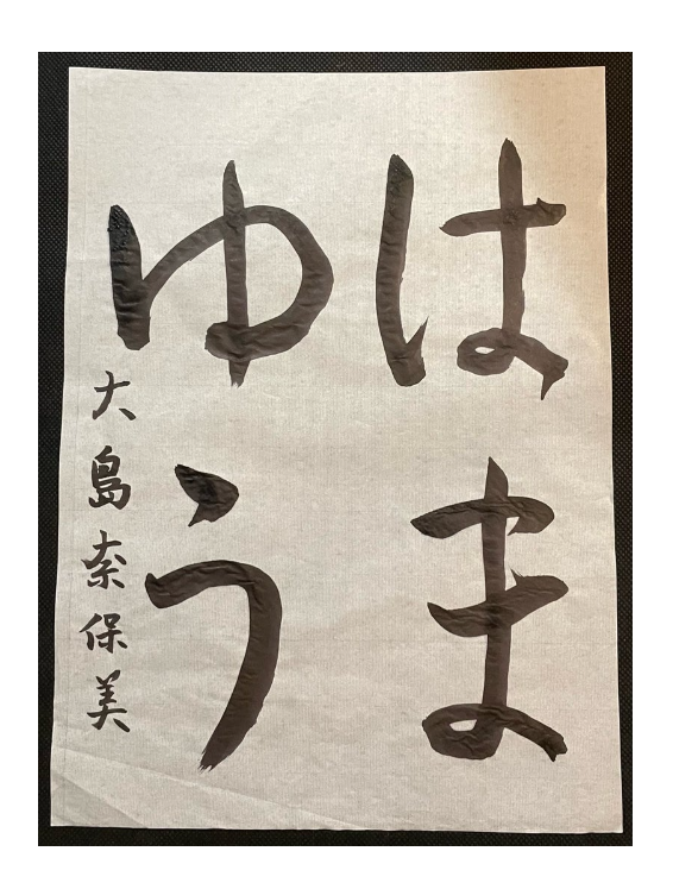 はま
ゆう
大島奈保美